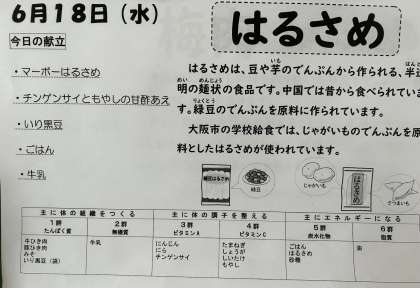 6月18日（水）
今日の献立
・マーボーはるさめ
・チンゲンサイともやしの甘酢あえ
・いり黒豆
・ごはん
・牛乳
はるさめ
はるさめは、豆や芋のでんぷんから作られる、半透
いも
はんと
明の麺状の食品です。中国では昔から食べられていま
めい めんじょう
す。緑豆のでんぷんを原料に作られています。
りょくとう
大阪市の学校給食では、じゃがいものでんぷんを原
料としたはるさめが使われています。
緑豆はるさめ
緑豆
じゃがいも
はるさめ
さつまいも
主に体の組織をつくる 主に体の調子を整える 主にエネルギーになる
1群 2群 3群 4群 5群 6群
たんぱく質 無機質 ビタミンA ビタミンC 炭水化物 脂質
牛ひき肉 牛乳 にんじん たまねぎ ごはん 油
豚ひき肉 にら しょうが はるさめ
みそ チンゲンサイ しいたけ 砂糖
いり黒豆（袋） もやし